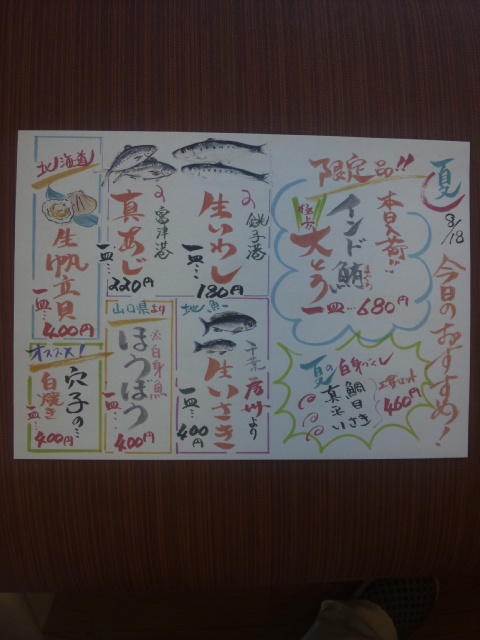 夏
8/18
今日のおすすめ!
限定品!!
本日入荷!!
インド鮪
まぐろ
大とろ
一皿…680円
夏の白身づくし
三貫セット
460円
鯛
真平目
いさき
の
銚子港
生いわし
一皿…180円
の
富津港
真あじ
一皿…220円
地魚
千葉房州より
生いさき
一皿…400円
山口県より
白身魚
ほうぼう
一皿…400円
北海道
生帆立貝
一皿…400円
オススメ!
穴子の…
白焼き
一皿…400円